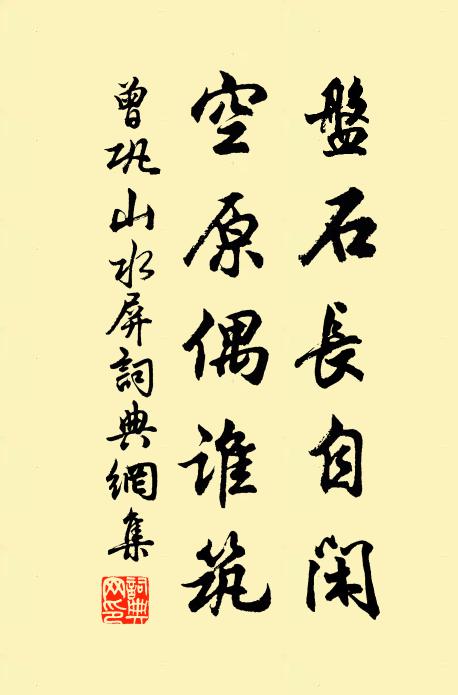 盤石長自閑
空原偶誰筑
曾巩山水屏詞典網集
詞典網印